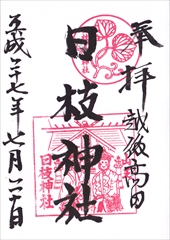 奉拝
越後高田
日枝神社
日枝神社
平成二十七年七月二十日